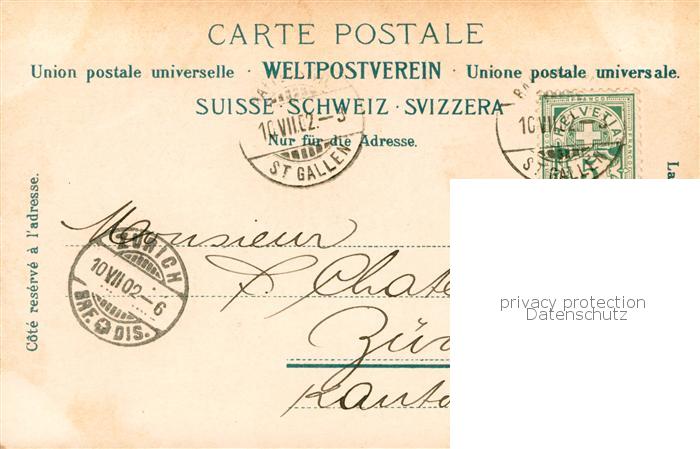 CARTE POSTALE
Union postale universelle · WELTPOSTVEREIN · Unione postale universale.
SUISSE · SCHWEIZ · SVIZZERA
Nur für die Adresse.
10 VII 02 – 
ST GALLEN
10 VII
ST GALLEN
FRANCO
HELVETIA
Côté resérvé à l'adresse.
La
Monsieur
ZÜRICH
10 VII 02 – 6
BRF. DIS.
Chate
Zür
Kanto
privacy protection
Datenschutz